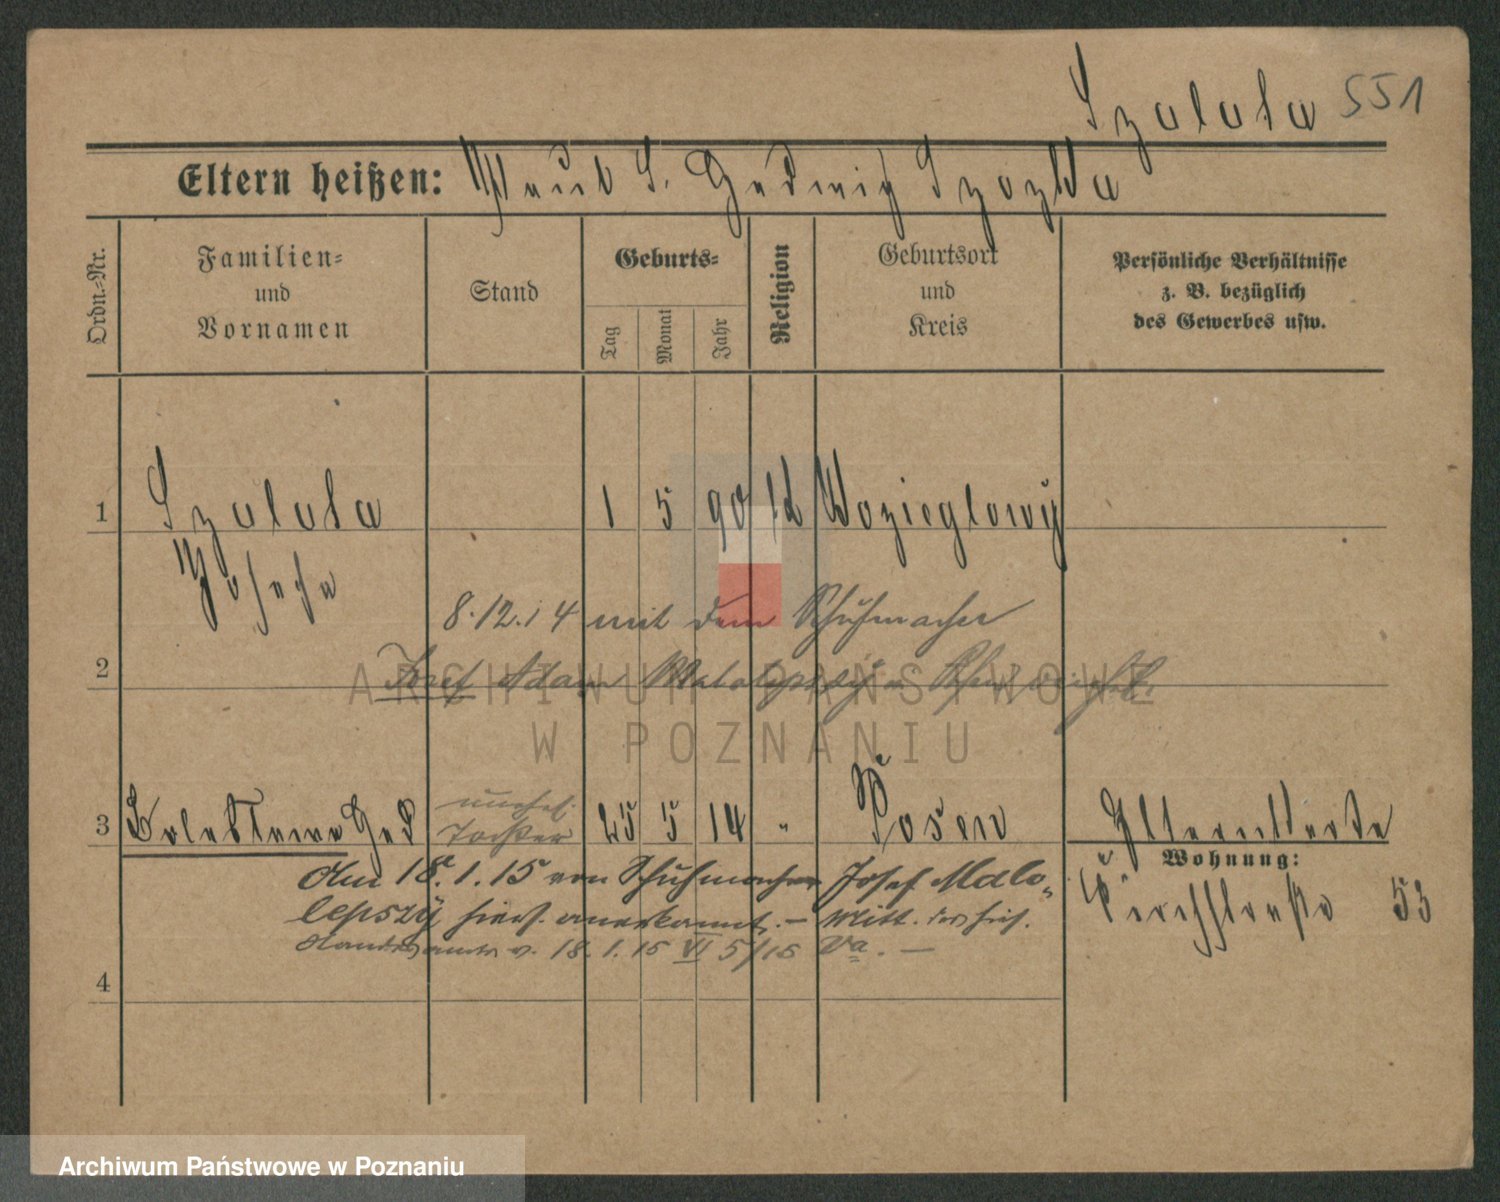 Szalata 551
Eltern heißen: Jakub S. Hedwig Szozda
Ordn.-Nr.
Familien-
und
Vornamen
Stand
Geburts-
Tag
Monat
Jahr
Religion
Geburtsort
und
Kreis
Persönliche Verhältnisse
z. B. bezüglich
des Gewerbes usw.
1 Szalata 1 5 90
Josefa
8.12.14 mit dem Schuhmacher
2 Josef Adam Malolepszy
3 Ged unehel. Tochter 25 5 14 " Posen
Wohnung:
53
Am 18.1.15 von Schuhmacher Josef Malo-
lepszy hiers. anerkannt. — Mitt. des hies.
Standesamts v. 18.1.15 VI 5/15 Va. —
4
ARCHIWUM PAŃSTWOWE
W POZNANIU
Archiwum Państwowe w Poznaniu